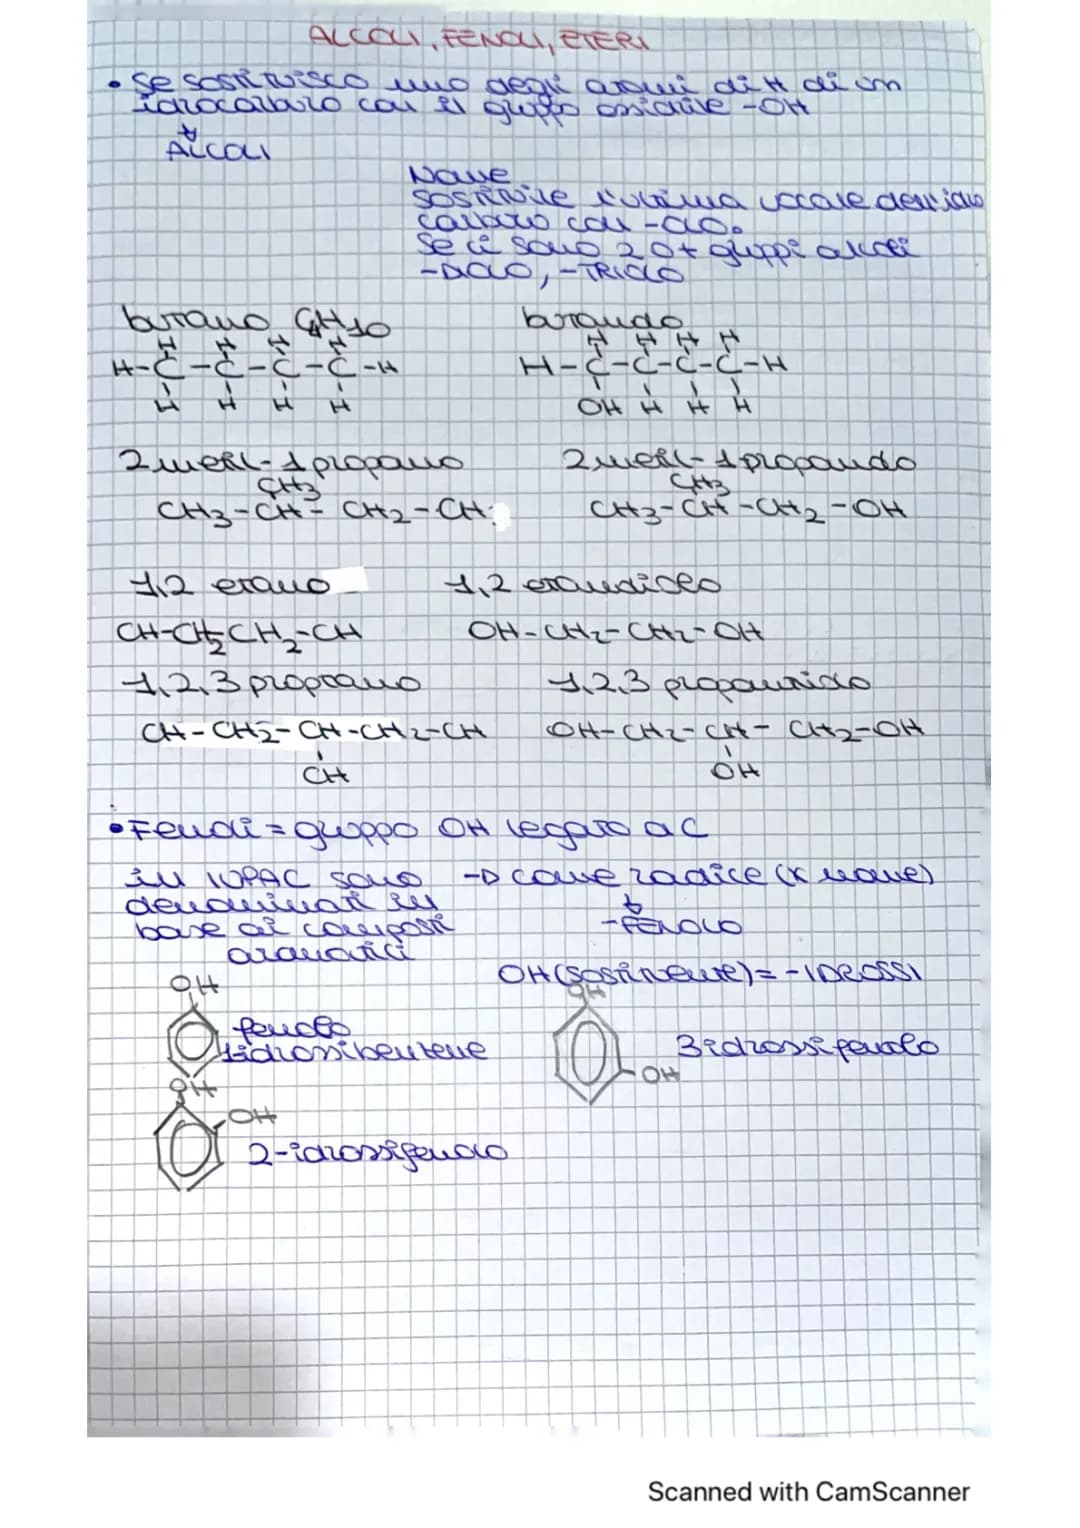 ALCOLI, FENOLI, ETERI
• Se sostituisco uno degli atomi di H di un
idrocarburo con il gruppo ossidrile -OH
ALCOLI
Nome
sostituire l'ultima vocale dell'idro
carburo con -olo.
Se ci sono 2 o + gruppi alcoli
-DIOLO, -TRIOLO
butano C4H10
butanolo
H H H H
H-C-C-C-C-H
H H H H
H H H H
H-C-C-C-C-H
OH H H H
2 metil-1 propano
2 metil-1 propanolo
CH3
CH3-CH-CH2-CH
CH3
CH3-CH-CH2-OH
1,2 etano
1,2 etandiolo
CH-CH2-CH2-CH
OH-CH2-CH2-OH
1,2,3 propano
1,2,3 propantriolo
CH-CH2-CH-CH2-CH
CH
OH-CH2-CH-CH2-OH
OH
• Fenoli = gruppo OH legato a C
in IUPAC sono
denominati in
base ai composti
aromatici
→ come radice (x nome)
-FENOLO
OH (sostituente) = -IDROSSI
OH
fenolo
1idrossibenzene
OH
OH
3idrossifenolo
OH
OH
2-idrossifenolo
Scanned with CamScanner